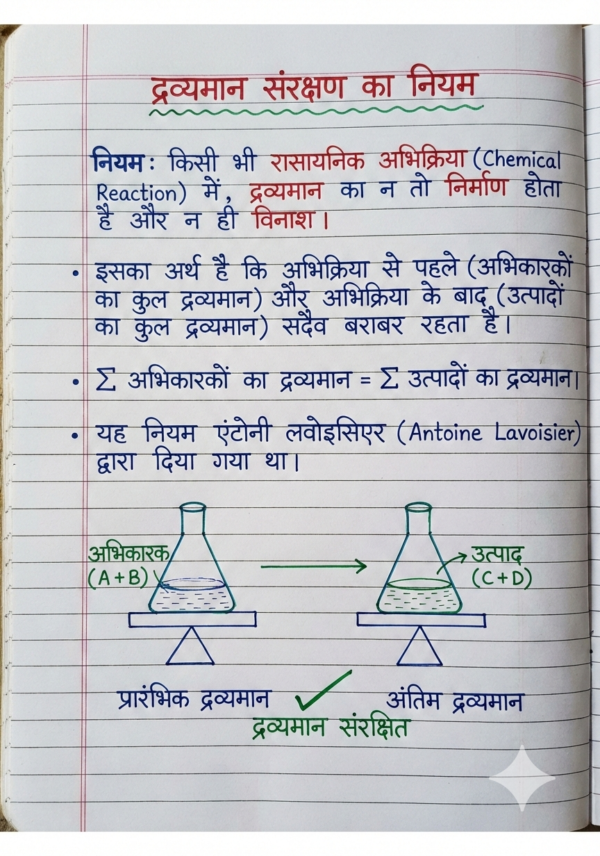 द्रव्यमान संरक्षण का नियम
नियम: किसी भी रासायनिक अभिक्रिया (Chemical
Reaction) में, द्रव्यमान का न तो निर्माण होता
है और न ही विनाश।
• इसका अर्थ है कि अभिक्रिया से पहले (अभिकारकों
का कुल द्रव्यमान) और अभिक्रिया के बाद (उत्पादों
का कुल द्रव्यमान) सदैव बराबर रहता है।
• ∑ अभिकारकों का द्रव्यमान = ∑ उत्पादों का द्रव्यमान।
• यह नियम एंटोनी लवोइसिएर (Antoine Lavoisier)
द्वारा दिया गया था।
अभिकारक
(A+B)
उत्पाद
(C+D)
प्रारंभिक द्रव्यमान
अंतिम द्रव्यमान
द्रव्यमान संरक्षित